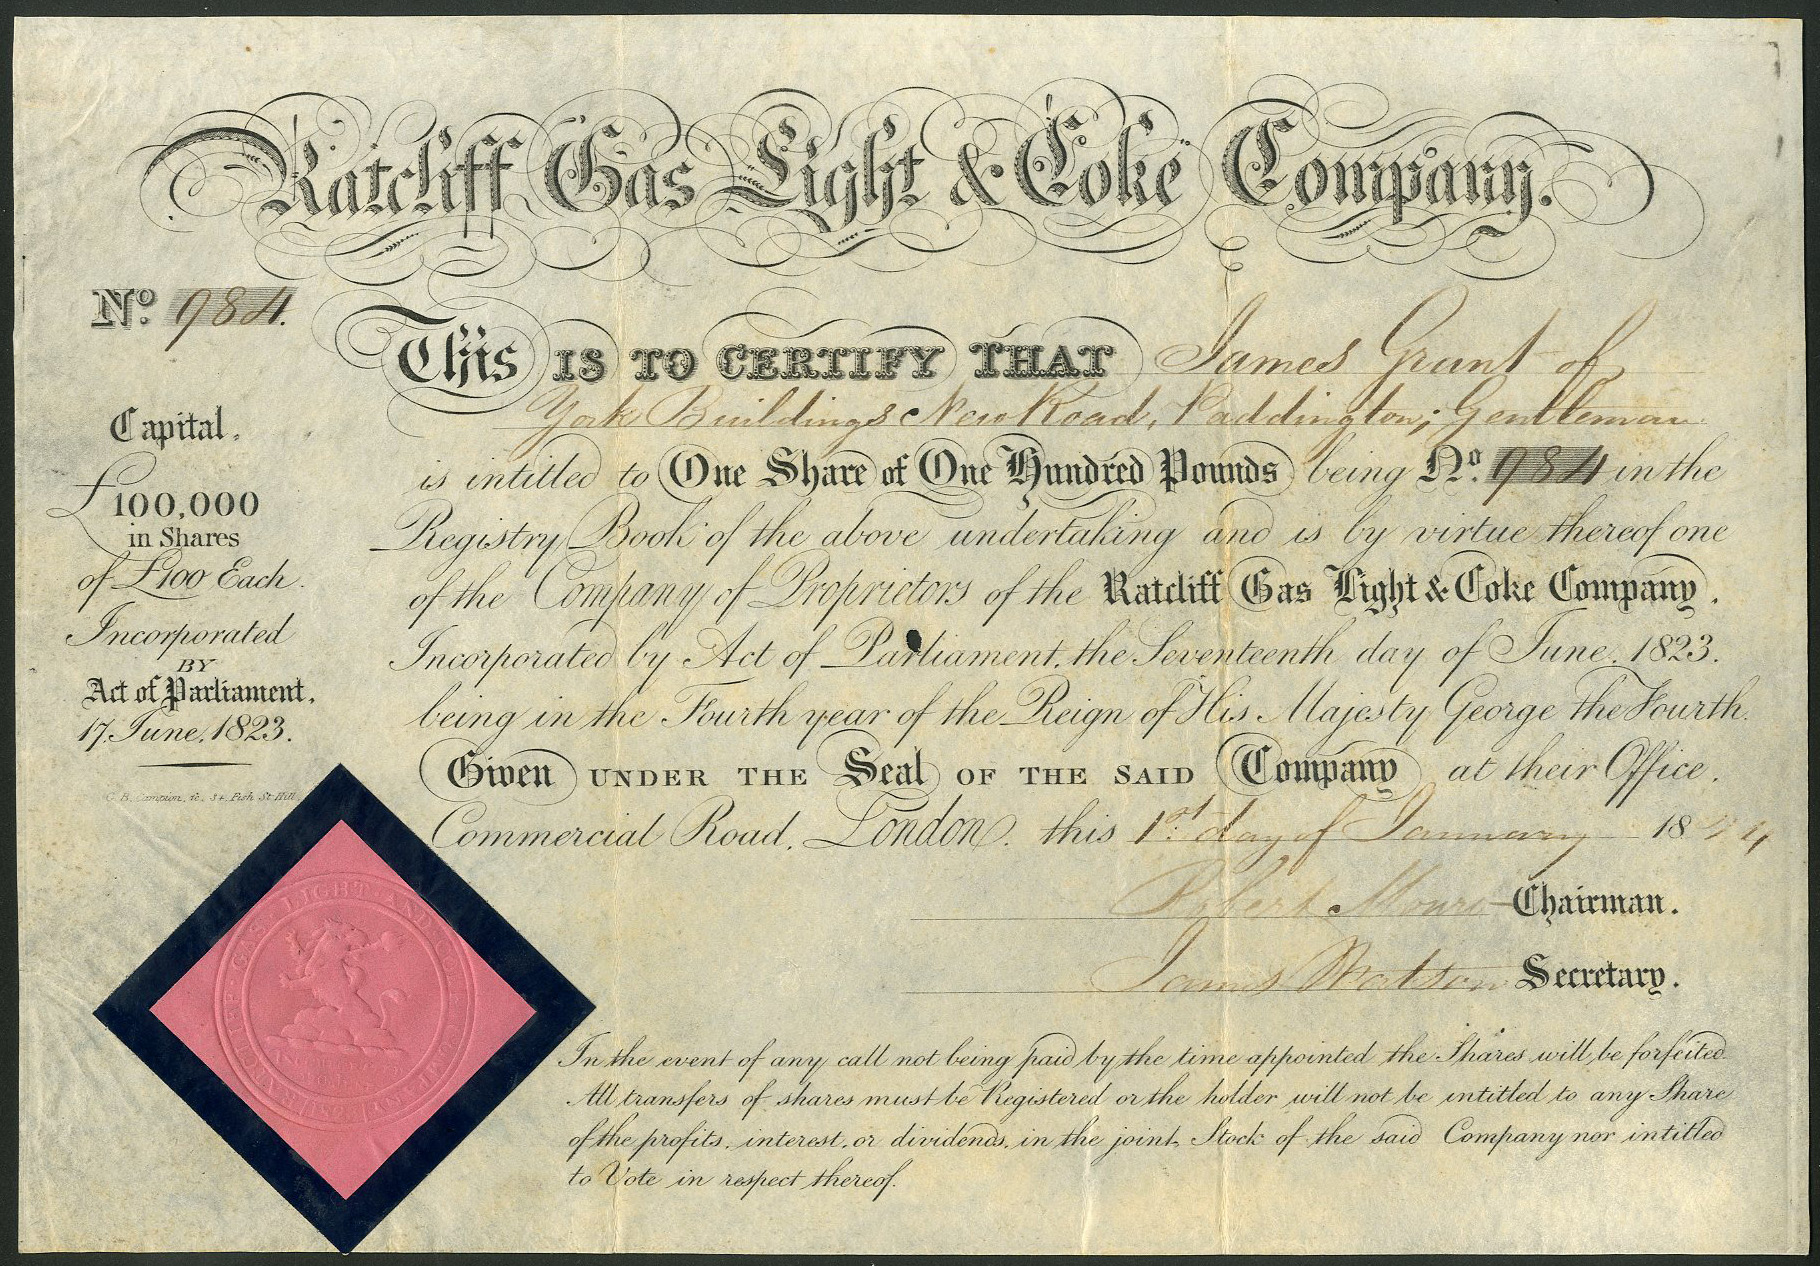 Ratcliff Gas Light & Coke Company.
No. 984.
This IS TO CERTIFY THAT James Grant of
York Buildings New Road, Paddington; Gentleman
is intitled to One Share of One Hundred Pounds being No. 984 in the
Registry Book of the above undertaking and is by virtue thereof one
of the Company of Proprietors of the Ratcliff Gas Light & Coke Company.
Incorporated by Act of Parliament, the Seventeenth day of June, 1823.
being in the Fourth year of the Reign of His Majesty George the Fourth.
Given UNDER THE Seal OF THE SAID Company at their Office.
Commercial Road, London. this 1st day of January 18
Robert Chairman.
James Watson Secretary.
Capital,
£100,000
in Shares
of £100 Each.
Incorporated
BY
Act of Parliament,
17, June, 1823.
In the event of any call not being paid by the time appointed the Shares will be forfeited
All transfers of shares must be Registered or the holder will not be intitled to any Share
of the profits, interest, or dividends, in the joint Stock of the said Company nor intitled
to Vote in respect thereof.
RATCLIFF · GAS · LIGHT · AND · COKE